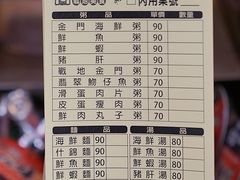 內用桌號
粥品 單價 數量
金門海鮮粥 90
鮮魚粥 90
鮮蝦粥 90
豬肝粥 90
戰地金門粥 70
翡翠吻仔魚粥 70
滑蛋肉片粥 70
皮蛋瘦肉粥 70
鮮肉丸子粥 70
麵品 湯品
海鮮麵 90 海鮮湯 80
什錦麵 90 鮮魚湯 80
鮮魚麵 90 鮮蝦湯 80
鮮蝦麵 90 豬肝湯 80